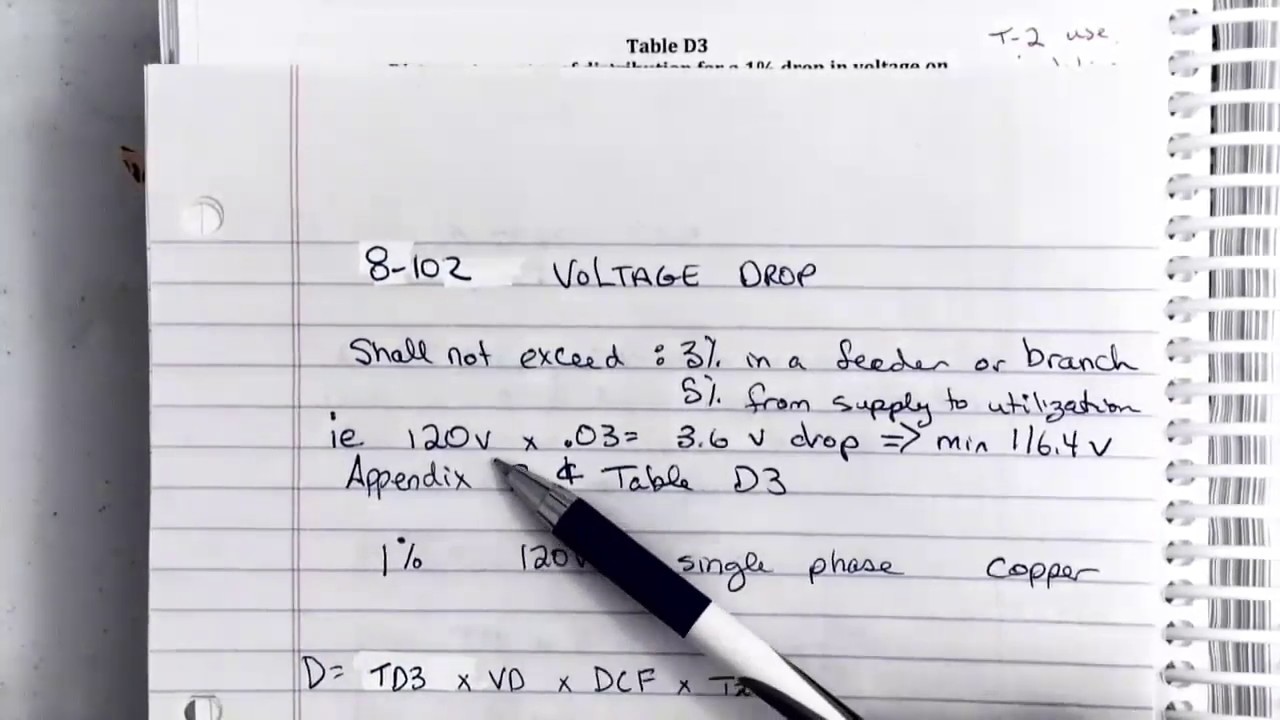 Table D3
T-2 use
for a 1% drop in voltage on
8-102 VOLTAGE DROP
Shall not exceed : 3% in a feeder or branch
5% from supply to utilization
ie 120v x .03 = 3.6 v drop => min 116.4 v
Appendix & Table D3
1% 120v single phase copper
D= TD3 x VD x DCF x